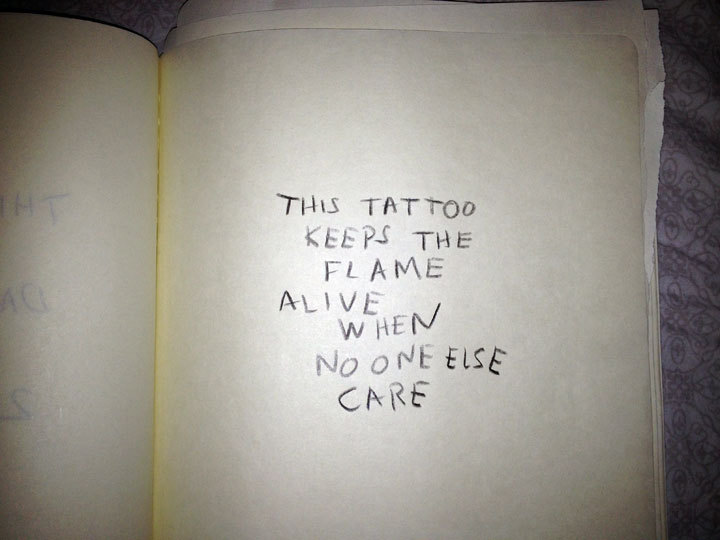 THIS TATTOO
KEEPS THE
FLAME
ALIVE
WHEN
NO ONE ELSE
CARE